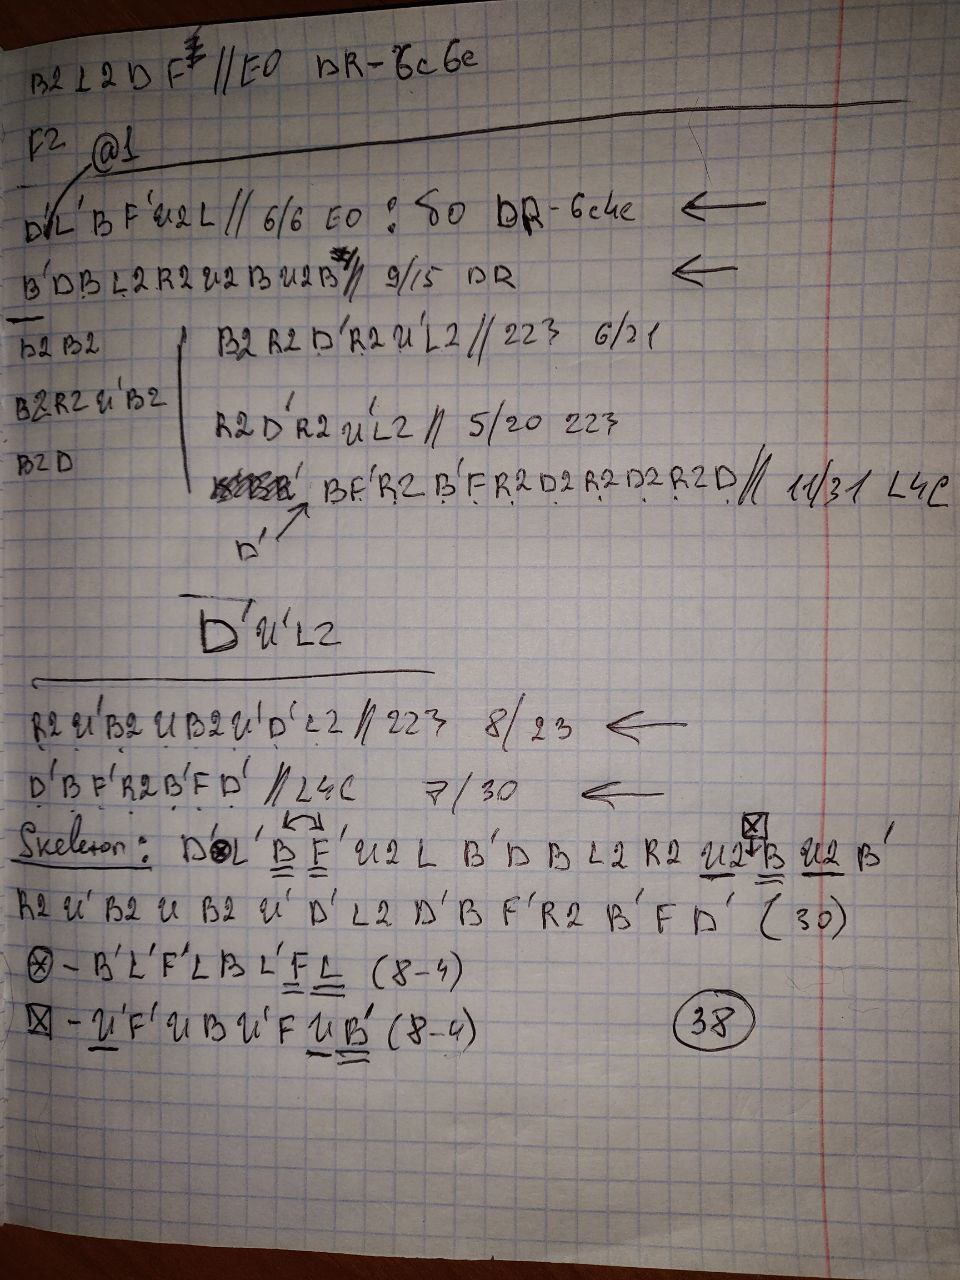 B2 L2 D F // EO DR-6c6e
F2 @1
D' L' B F' U2 L // 6/6 EO : DR-6c4e ←
B' D B L2 R2 U2 B U2 B' // 9/15 DR ←
D2 B2 B2 R2 D' R2 U' L2 // 223 6/21
B2 R2 U' B2
R2 D' R2 U' L2 // 5/20 223
B2 D
B F' R2 B' F R2 D2 R2 D2 R2 D // 11/31 L4C
D'
D' U' L2
R2 U' B2 U B2 U' D' L2 // 223 8/23 ←
D' B F' R2 B' F D' // L4C 7/30 ←
Skeleton: D' ⊗ L' B F' U2 L B' D B L2 R2 U2 ⊠ B U2 B'
R2 U' B2 U B2 U' D' L2 D' B F' R2 B' F D' (30)
⊗ - B' L' F' L B L' F L (8-4)
⊠ - U' F' U B U' F U B' (8-4) 38